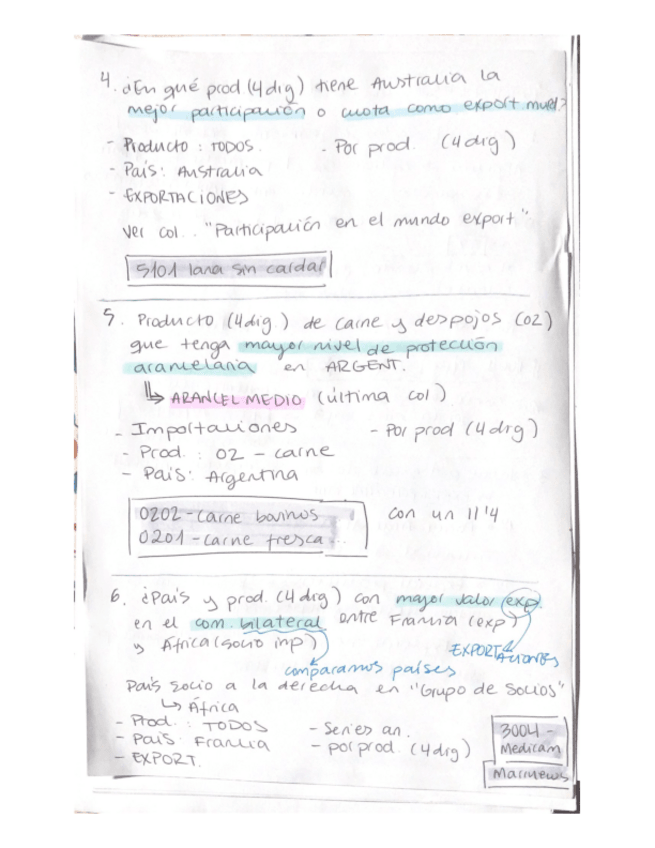 4. ¿En qué prod (4dig) tiene Australia la
mejor participación o cuota como export mund?
- Producto : TODOS. - Por prod. (4dig)
- País: Australia
- EXPORTACIONES
Ver col.. "Participación en el mundo export"
5101 lana sin cardar
5. Producto (4dig.) de carne y despojos (02)
que tenga mayor nivel de protección
arancelaria en ARGENT.
↳ ARANCEL MEDIO (última col)
- Importaciones - Por prod (4dig)
- Prod. : 02 - carne
- País: Argentina
0202 - carne bovinos con un 11'4
0201 - carne fresca...
6. ¿País y prod. (4dig) con mayor valor exp.
en el com. bilateral entre Francia (exp)
y África (socio imp) EXPORTACIONES
comparamos países
País socio a la derecha en "Grupo de Socios"
↳ África
- Prod. : TODOS - Series an.
- País: Francia - por prod. (4dig)
- EXPORT.
3004 -
Medicam
Marruecos